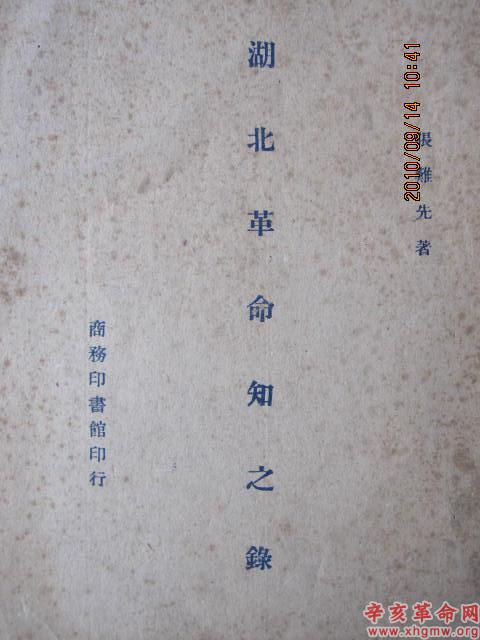 張難先著
湖北革命知之錄
商務印書館印行
2010/09/14 10:41
辛亥革命网
www.xhgmw.org